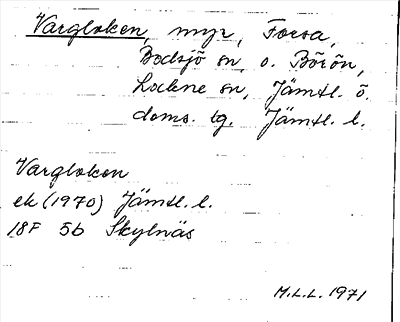 Vargloken, myr, Forsa,
Bodsjö sn, o. Börön,
Lockne sn, Jämtl. ö.
doms. tg. Jämtl. l.
Vargloken
ek (1970) Jämtl. l.
18F 5b Skylnäs
M.L.L. 1971